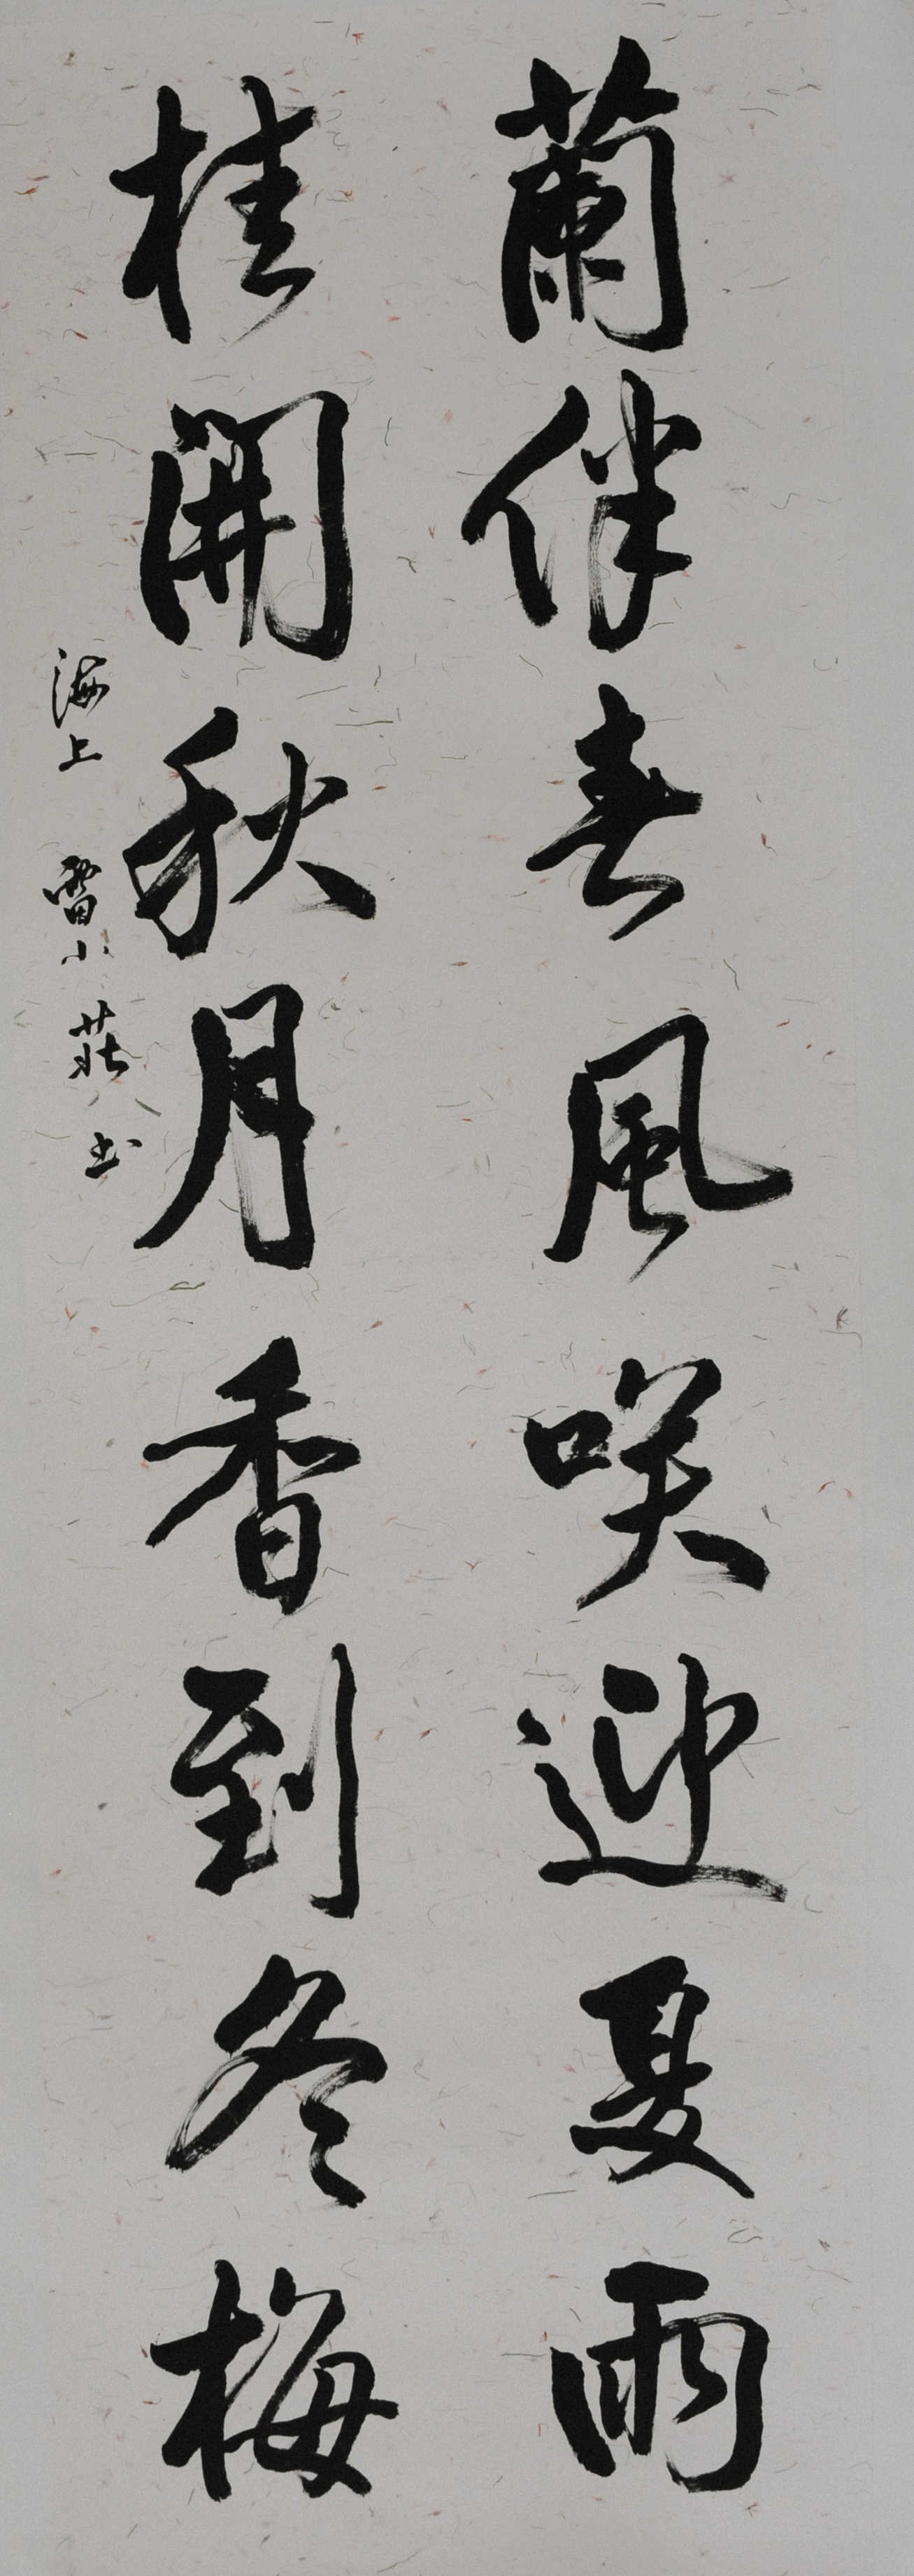 蘭伴春風咲迎夏雨
桂開秋月香到冬梅
海上 雷小莊书